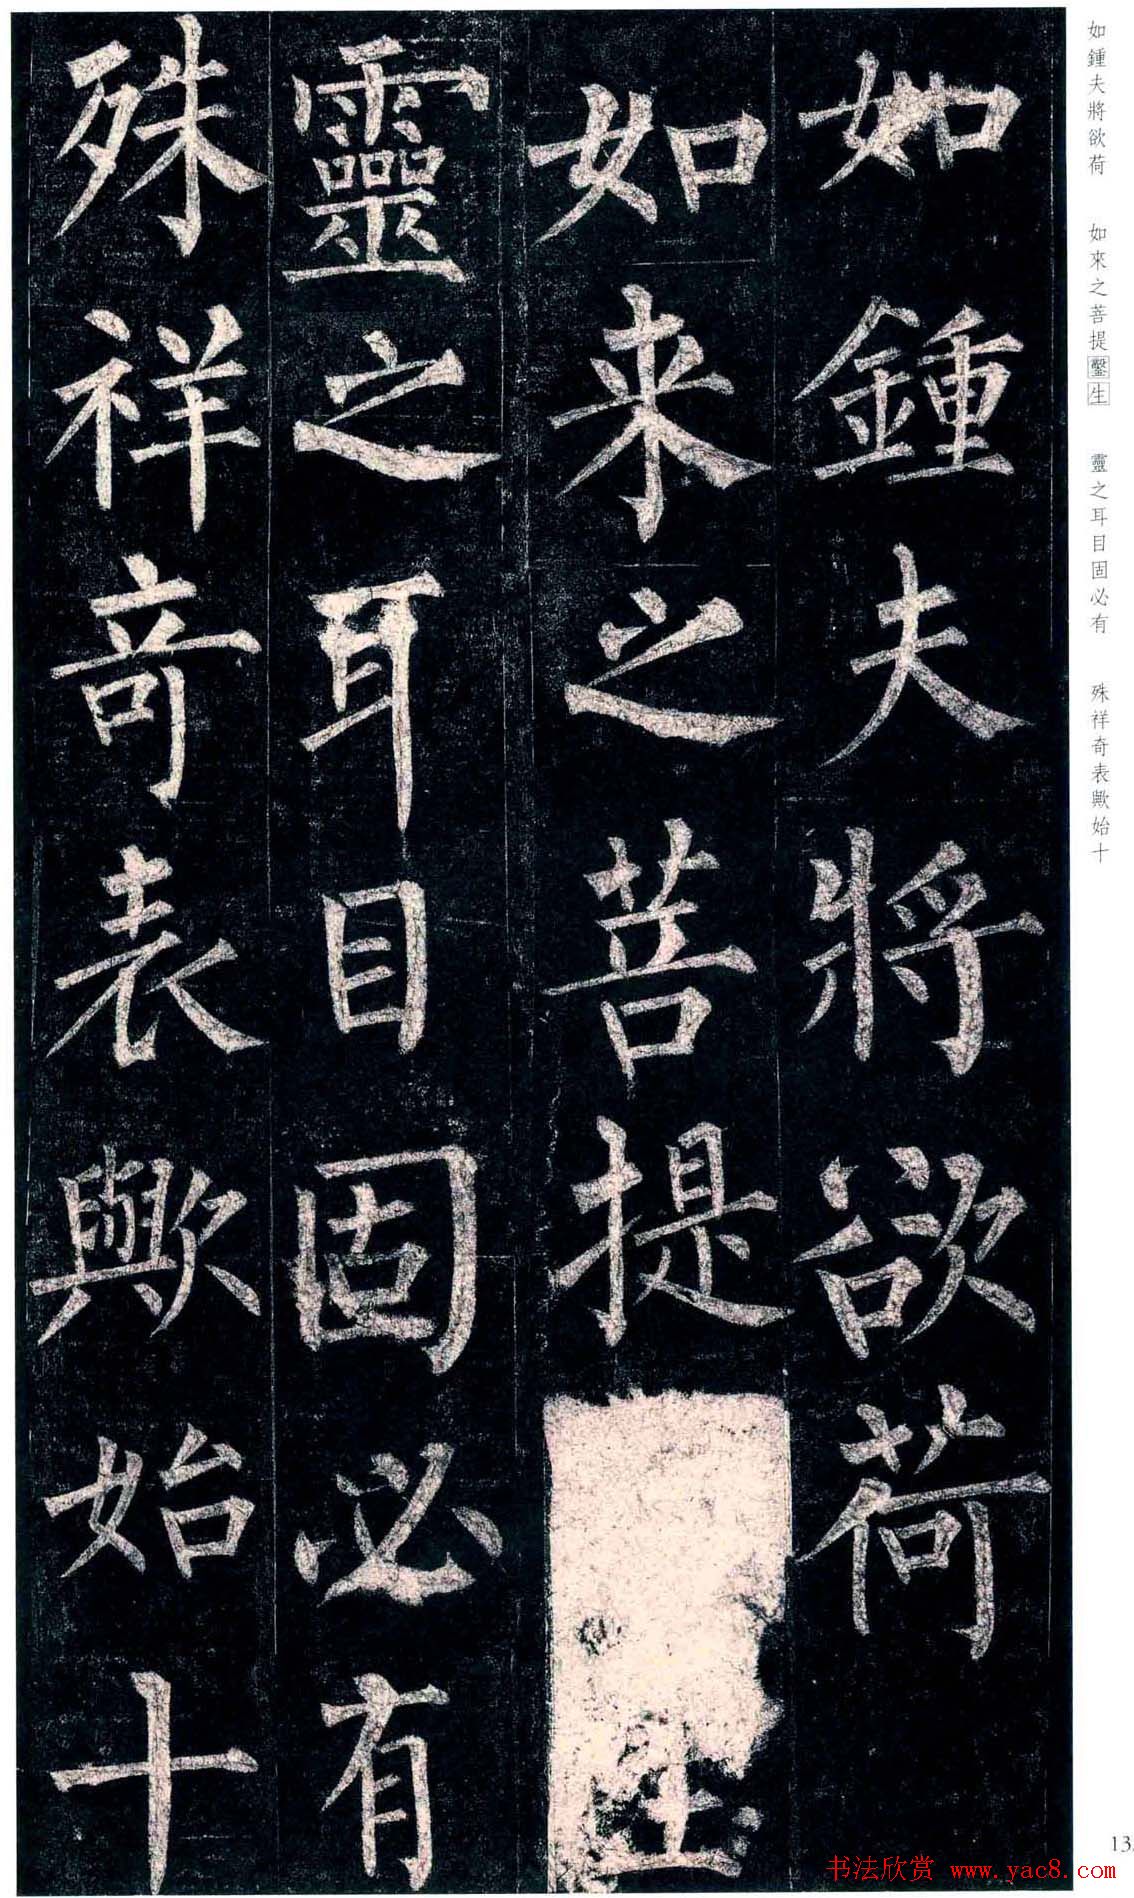 如鍾夫將欲荷　如來之菩提鑿生　靈之耳目固必有　殊祥奇表歟始十
如鍾夫將欲荷
如来之菩提生
靈之耳目固必有
殊祥竒表歟始十
13
书法欣赏 www.yac8.com